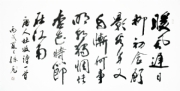 暖風遲日
柳初含顧
影看身又
自慚何事
明朝獨惆悵
杏花時節
在江南